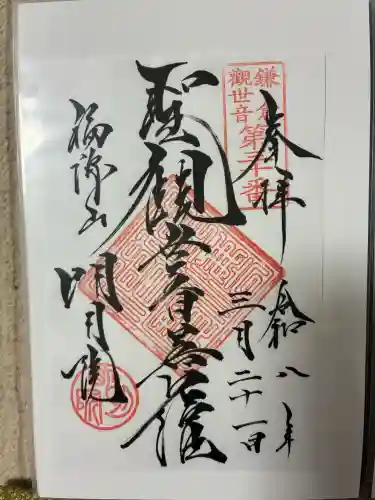 奉拝
令和八年
三月二十一日
鎌倉
觀世音
第三十番
聖観世音菩薩
福源山
明月院